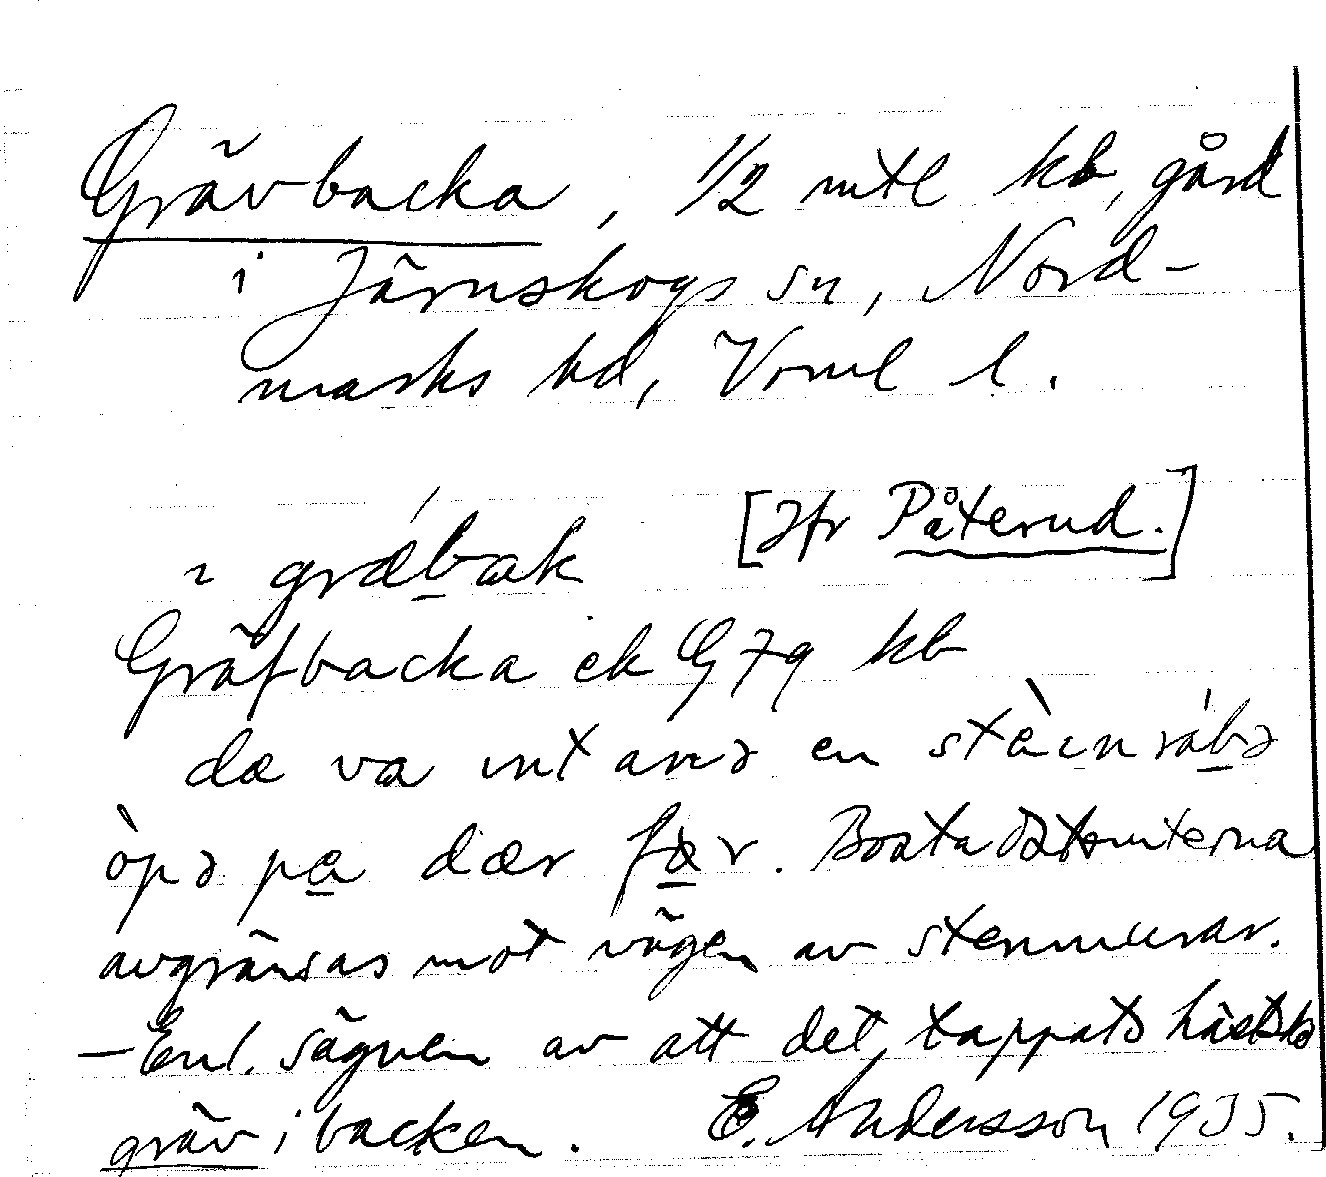 Grävbacka, 1/2 mtl kb, gård
i Järnskogs sn, Nord-
marks hd, Vrml l.
[Jfr Påterud.]
~ grǽbak
Gräfbacka ek G 79 kb
dæ va int anə en stèinrábə
òpə pa dær fær. Bostadstomterna
avgränsas mot vägen av stenmurar.
– Enl. sägnen av att det tappats hästsko
gräv i backen. E. Andersson 1935.